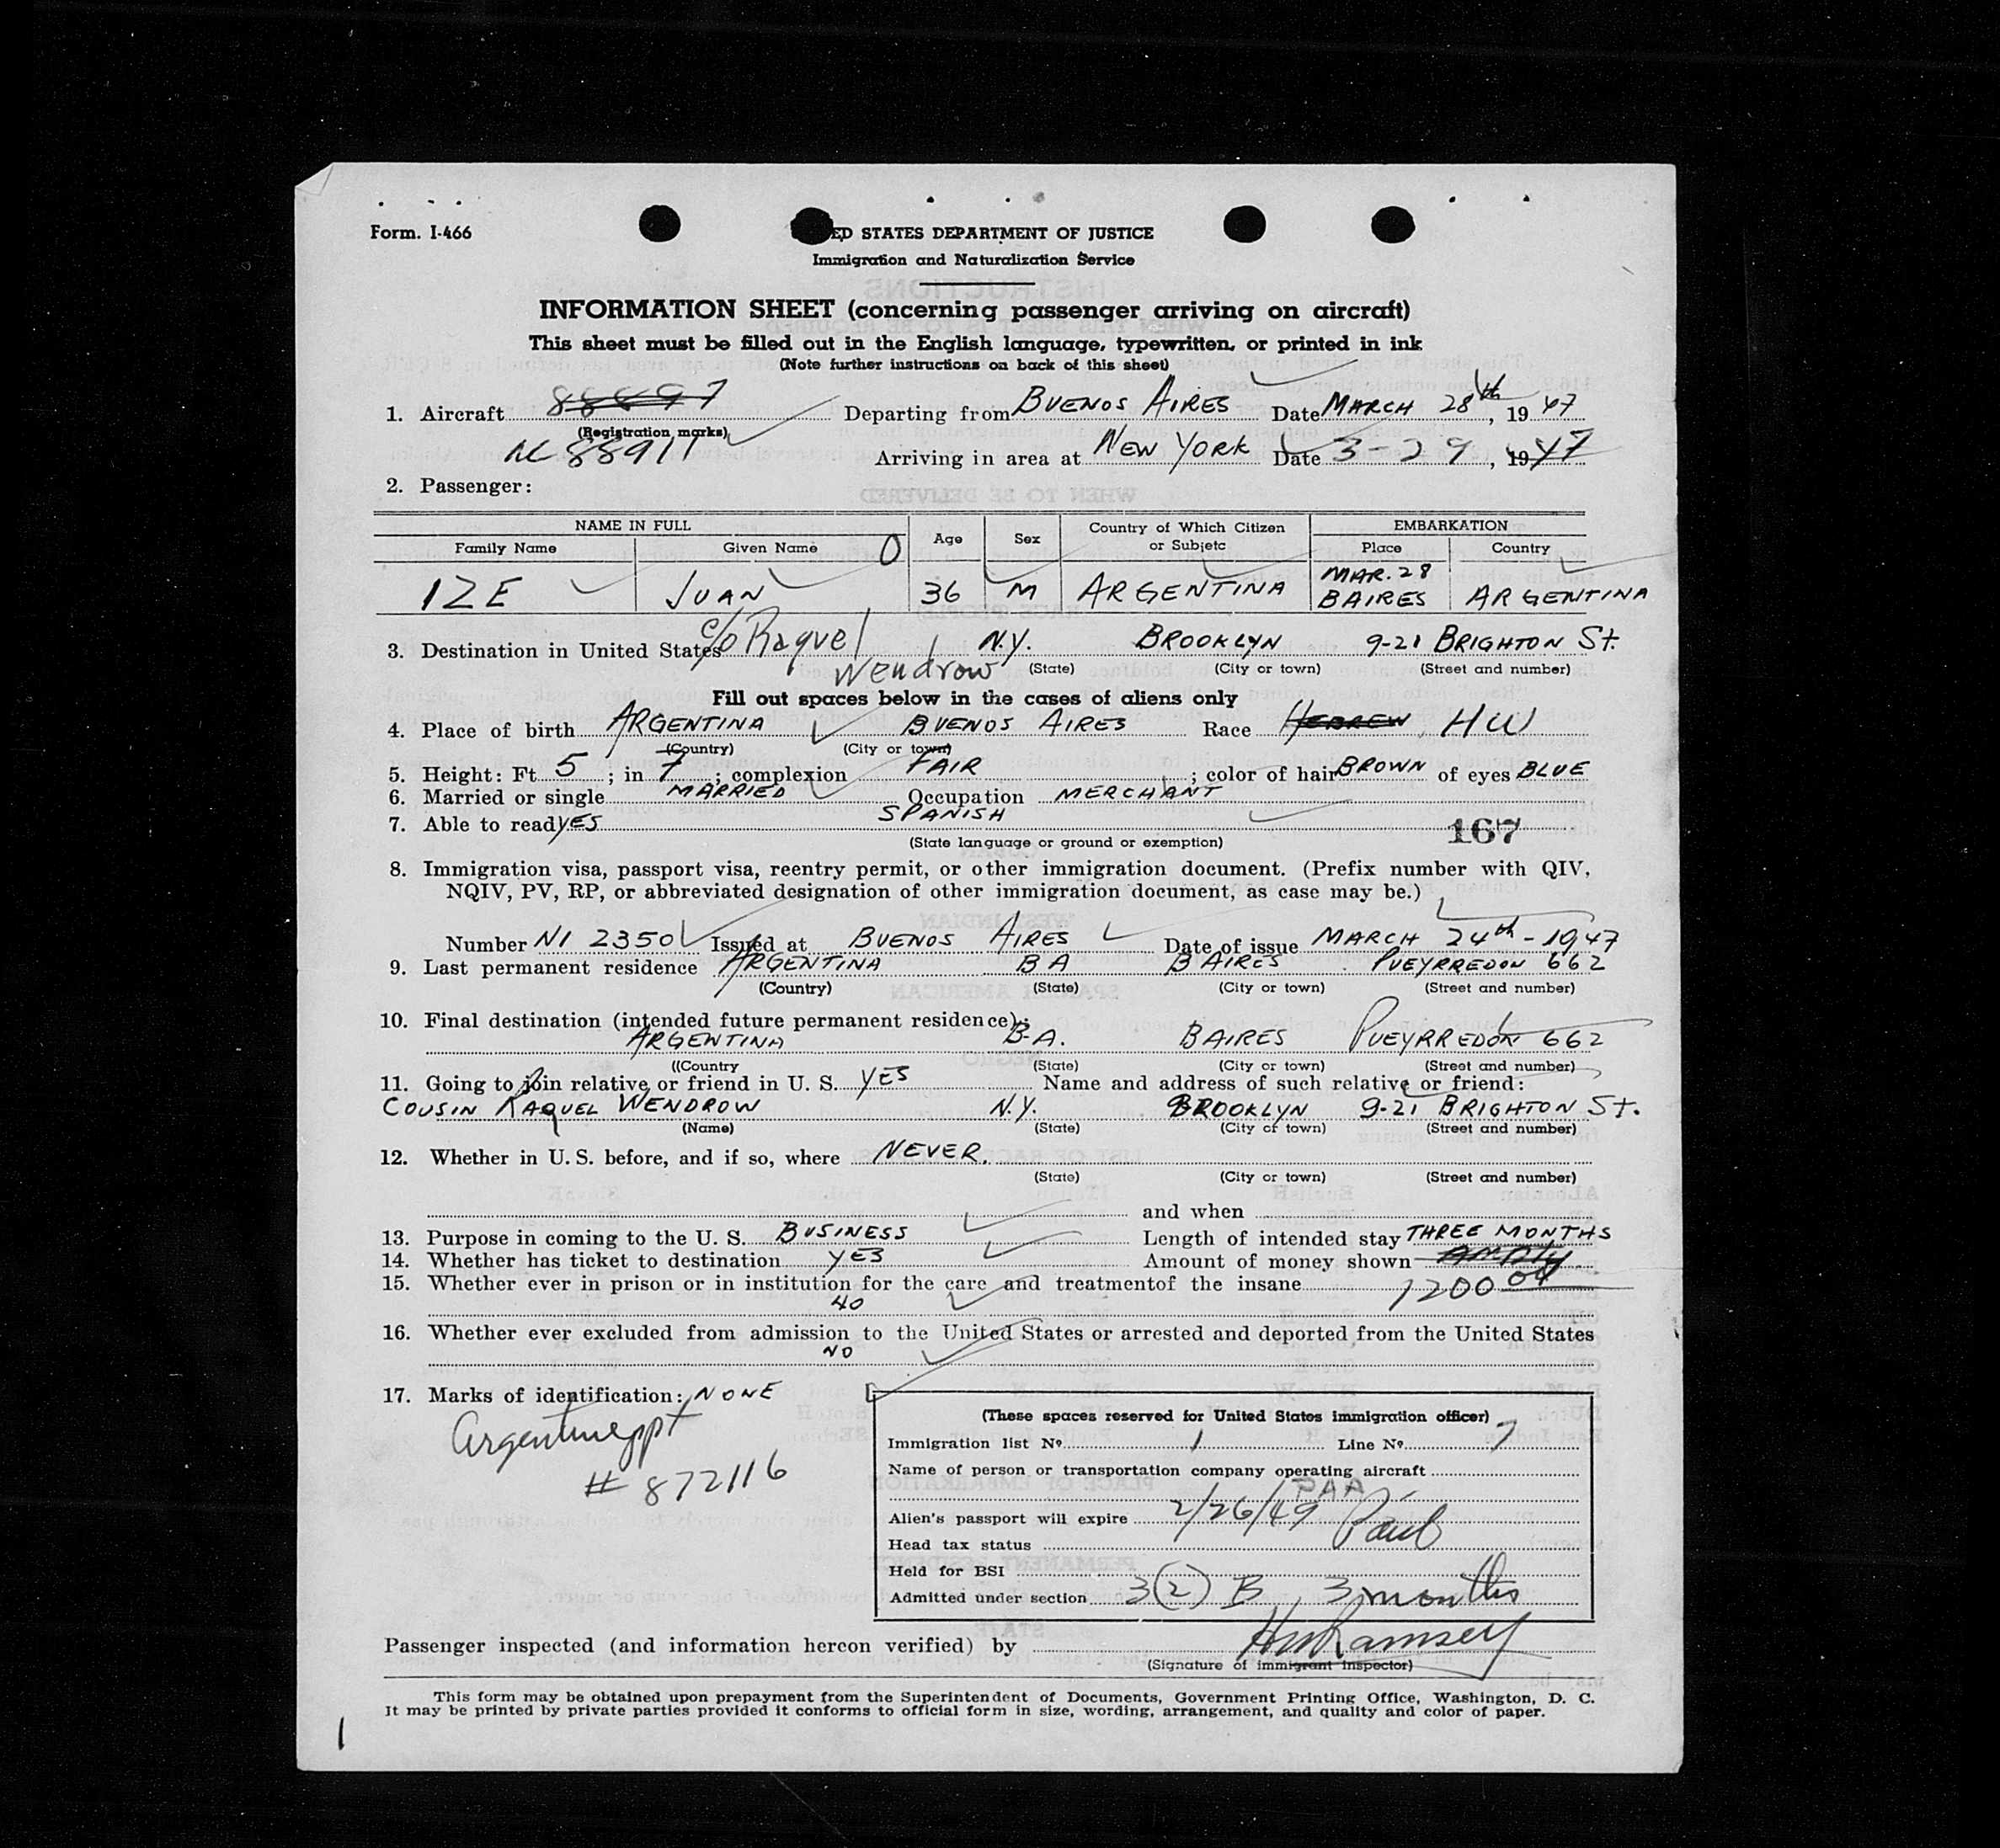 Form. I-466
ED STATES DEPARTMENT OF JUSTICE
Immigration and Naturalization Service
INFORMATION SHEET (concerning passenger arriving on aircraft)
This sheet must be filled out in the English language, typewritten, or printed in ink
(Note further instructions on back of this sheet)
1. Aircraft 88897 Departing from BUENOS AIRES Date MARCH 28th, 1947
(Registration marks)
NC 88911 Arriving in area at NEW YORK Date 3-29, 1947
2. Passenger:
NAME IN FULL Age Sex Country of Which Citizen or Subjetc EMBARKATION
Family Name Given Name O Place Country
IZE JUAN 36 M ARGENTINA MAR. 28 BAIRES ARGENTINA
3. Destination in United States c/o Raquel Wendrow N.Y. BROOKLYN 9-21 BRIGHTON St.
(State) (City or town) (Street and number)
Fill out spaces below in the cases of aliens only
4. Place of birth ARGENTINA BUENOS AIRES Race HEBREW HW
(Country) (City or town)
5. Height: Ft 5 ; in 7 ; complexion FAIR ; color of hair BROWN of eyes BLUE
6. Married or single MARRIED Occupation MERCHANT
7. Able to read YES SPANISH
(State language or ground or exemption) 167
8. Immigration visa, passport visa, reentry permit, or other immigration document. (Prefix number with QIV,
NQIV, PV, RP, or abbreviated designation of other immigration document, as case may be.)
Number NI 2350 Issued at BUENOS AIRES Date of issue MARCH 24th - 1947
9. Last permanent residence ARGENTINA BA BAIRES PUEYRREDON 662
(Country) (State) (City or town) (Street and number)
10. Final destination (intended future permanent residence):
ARGENTINA B.A. BAIRES PUEYRREDON 662
((Country (State) (City or town) (Street and number)
11. Going to join relative or friend in U. S. YES Name and address of such relative or friend:
COUSIN RAQUEL WENDROW N.Y. BROOKLYN 9-21 BRIGHTON St.
(Name) (State) (City or town) (Street and number)
12. Whether in U. S. before, and if so, where NEVER.
(State) (City or town) (Street and number)
and when
13. Purpose in coming to the U. S. BUSINESS Length of intended stay THREE MONTHS
14. Whether has ticket to destination YES Amount of money shown AMPLY
15. Whether ever in prison or in institution for the care and treatmentof the insane 1200 00
NO
16. Whether ever excluded from admission to the United States or arrested and deported from the United States
NO
17. Marks of identification: NONE
Argentine ppt
# 872116
(These spaces reserved for United States immigration officer)
Immigration list Nº 1 Line Nº 7
Name of person or transportation company operating aircraft
PAA
Alien's passport will expire 2/26/49 Paid
Head tax status
Held for BSI
Admitted under section 3(2) B, 3 months
Passenger inspected (and information hereon verified) by HW Ramsey
(Signature of immigrant inspector)
This form may be obtained upon prepayment from the Superintendent of Documents, Government Printing Office, Washington, D. C.
It may be printed by private parties provided it conforms to official form in size, wording, arrangement, and quality and color of paper.
1